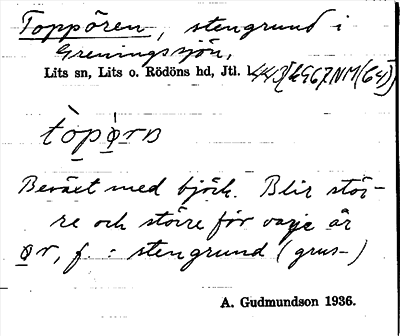 Toppören, stengrund i
Greningssjön,
Lits sn, Lits o. Rödöns hd, Jtl.
tòpørn
Beväxt med björk. Blir stör-
re och större för varje år
ør, f. : stengrund (grus-)
A. Gudmundson 1936.